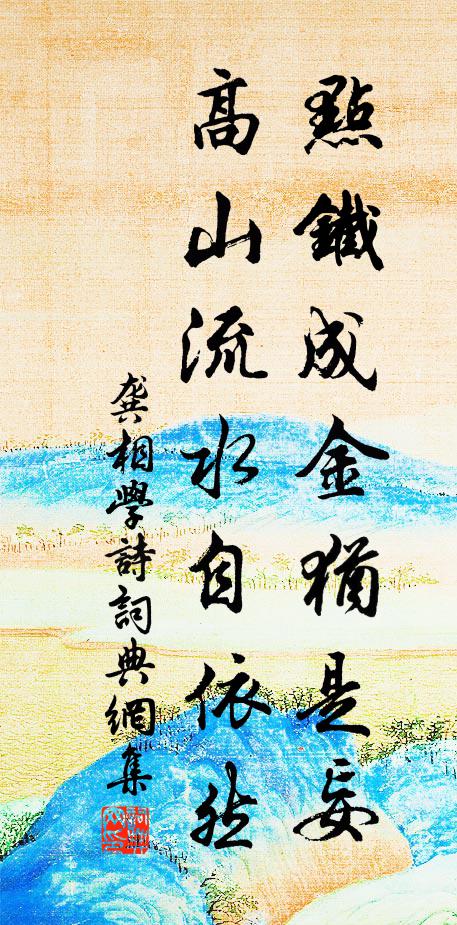 點鐵成金猶是妄
高山流水自依然
龔相學詩詞典網集